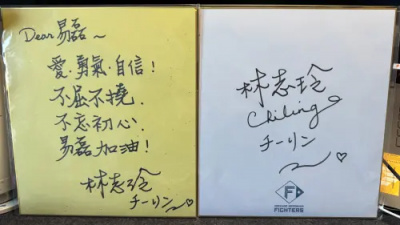 Dear 易磊~
愛.勇氣.自信!
不屈不撓.
不忘初心.
易磊加油!
林志玲
チーリン
林志玲
Chiling
チーリン
F
FIGHTERS